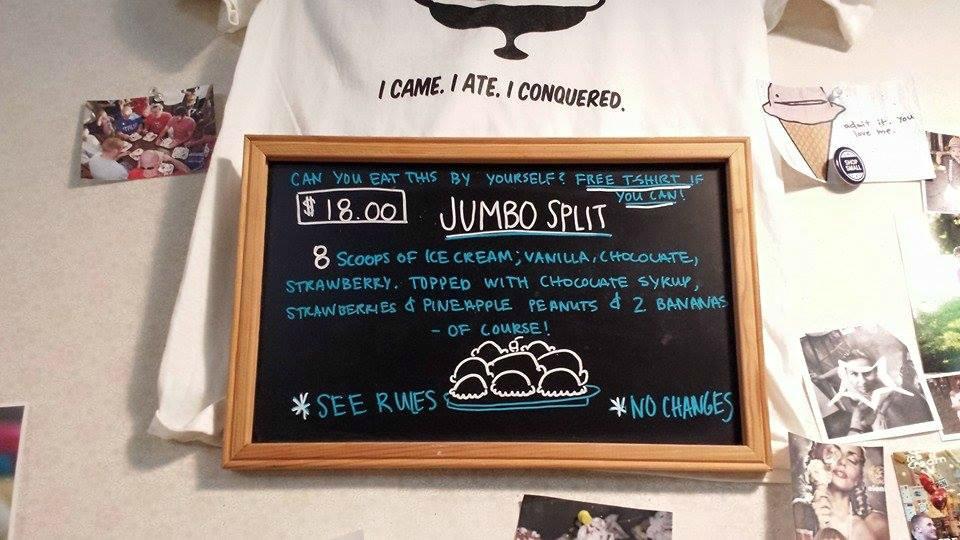 I CAME. I ATE. I CONQUERED.
admit it. You
love me.
SHOP
SMALL
CAN YOU EAT THIS BY YOURSELF? FREE T-SHIRT IF
YOU CAN!
$18.00
JUMBO SPLIT
8 SCOOPS OF ICE CREAM; VANILLA, CHOCOLATE,
STRAWBERRY. TOPPED WITH CHOCOLATE SYRUP,
STRAWBERRIES & PINEAPPLE PEANUTS & 2 BANANAS
- OF COURSE!
* SEE RULES
* NO CHANGES